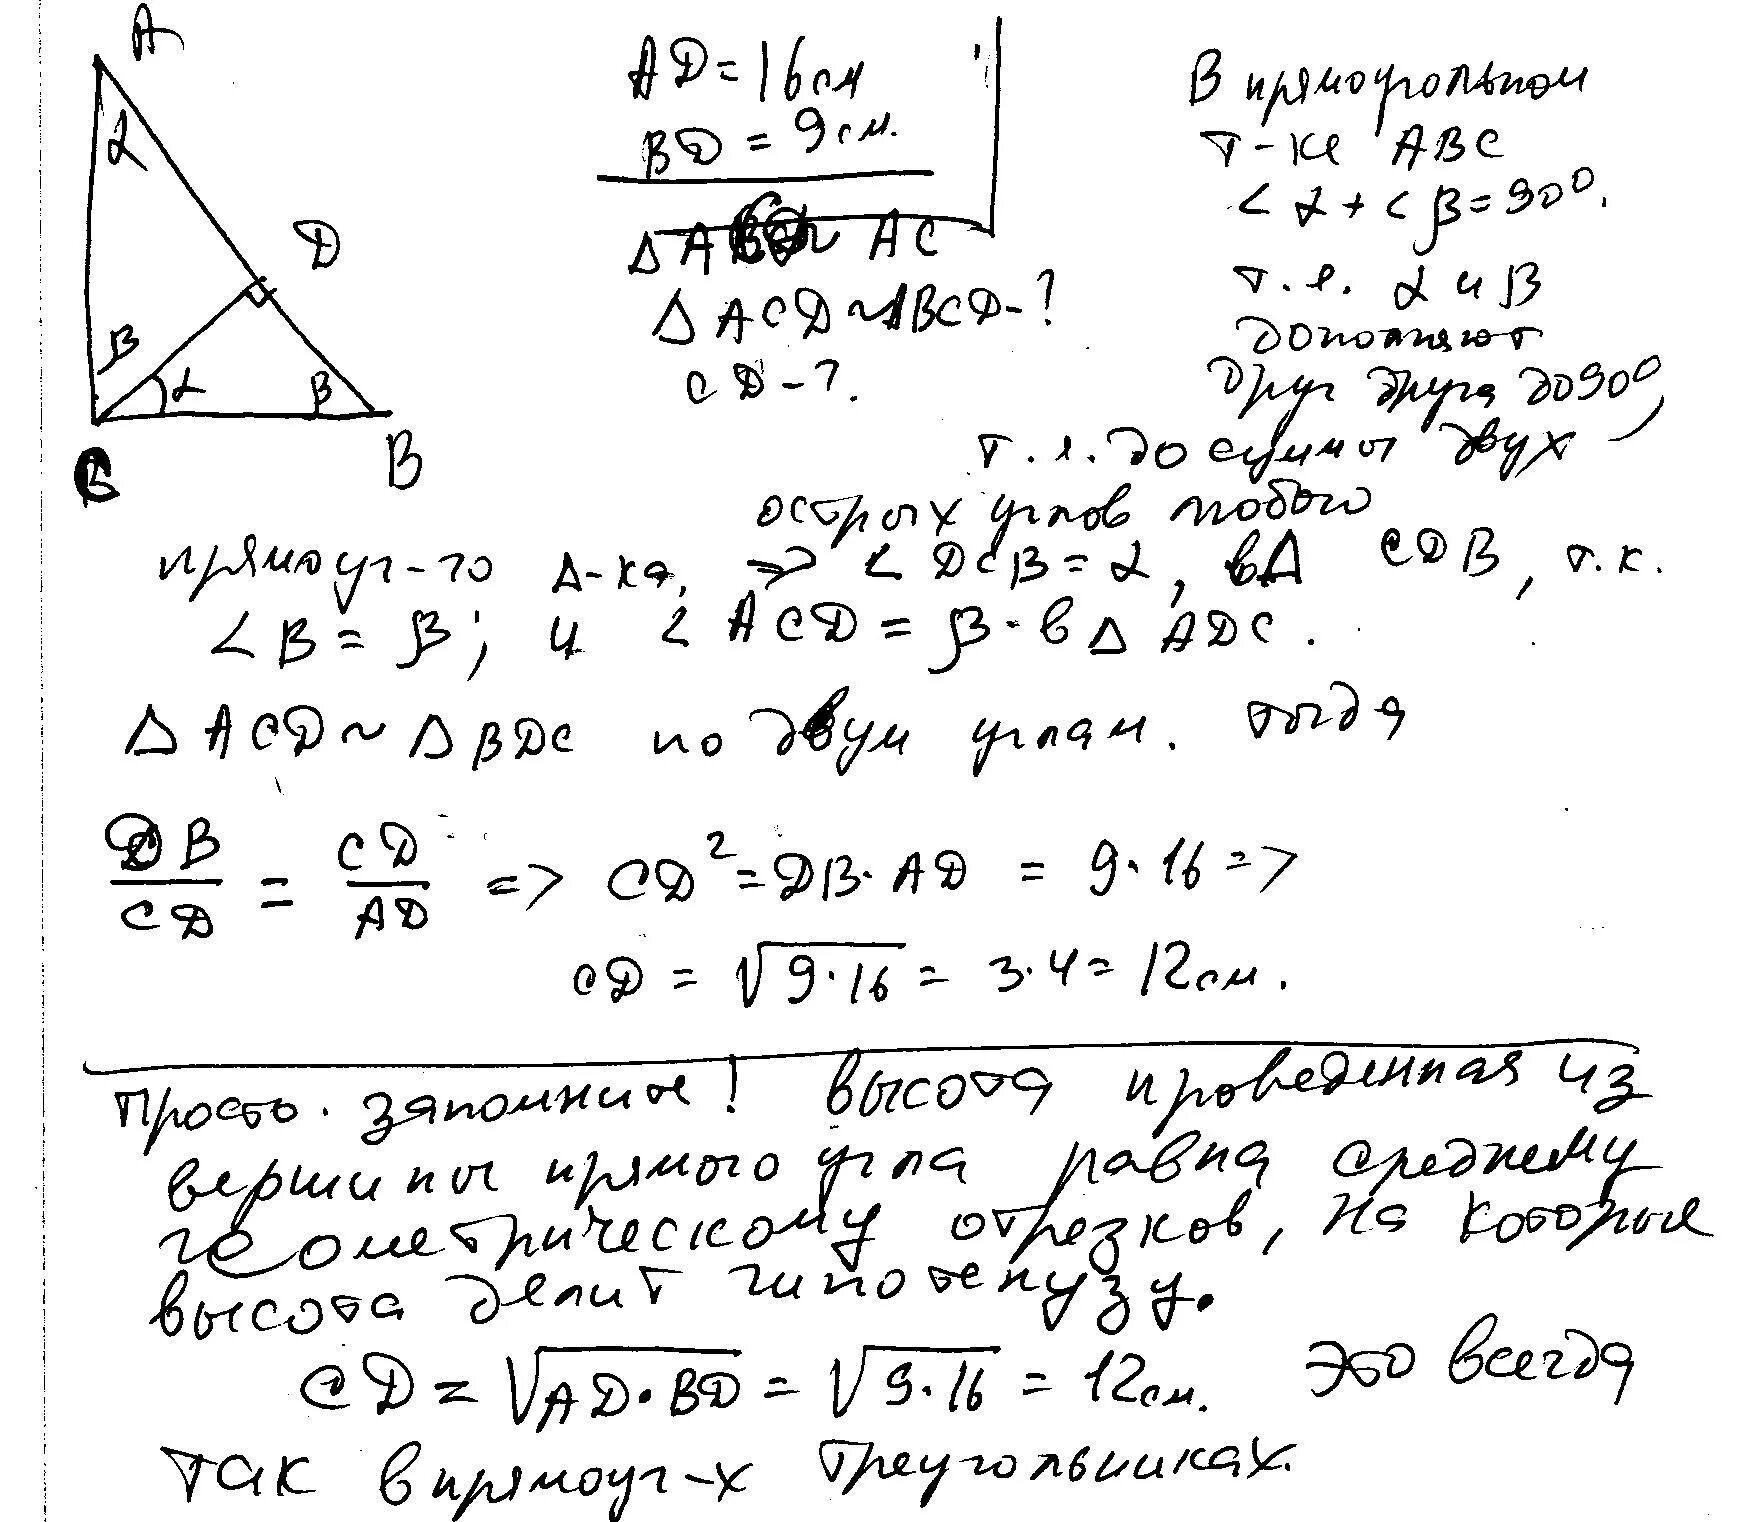 A
α
D
β
α
β
C
B
AD = 16см
BD = 9см.
Δ A ~ AC
Δ ACD ~ ΔBCD - ?
CD - ?.
В прямоугольном
т-ке ABC
∠α + ∠β = 90°.
т.е. α и β
дополняют
друг друга до 90°,
т.е. до суммы двух
острых углов любого
прямоуг-го Δ-ка, => ∠DCB = α, в Δ CDB, т.к.
∠B = β; и ∠ACD = β - в Δ ADC.
Δ ACD ~ Δ BDC по двум углам. тогда
DB/CD = CD/AD => CD² = DB · AD = 9 · 16 =>
CD = √9 · 16 = 3 · 4 = 12см.
Просто запомните! высота проведенная из
вершины прямого угла равна среднему
геометрическому отрезков, на которые
высота делит гипотенузу.
CD = √AD · BD = √9 · 16 = 12см. это всегда
так в прямоуг-х треугольниках.